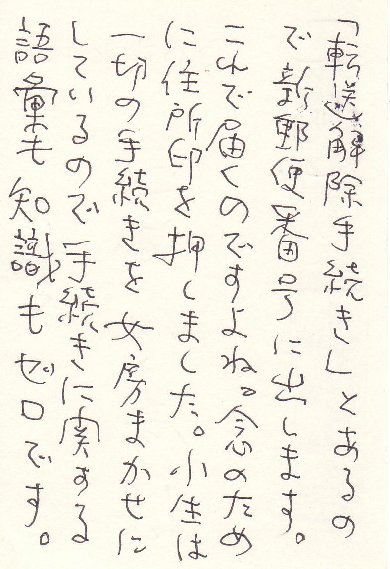 「転送解除手続き」とあるの
で新郵便番号に出します。
これで届くのですよね。念のため
に住所印を押しました。小生は
一切の手続きを女房まかせに
しているので手続きに関する
語彙も知識もゼロです。